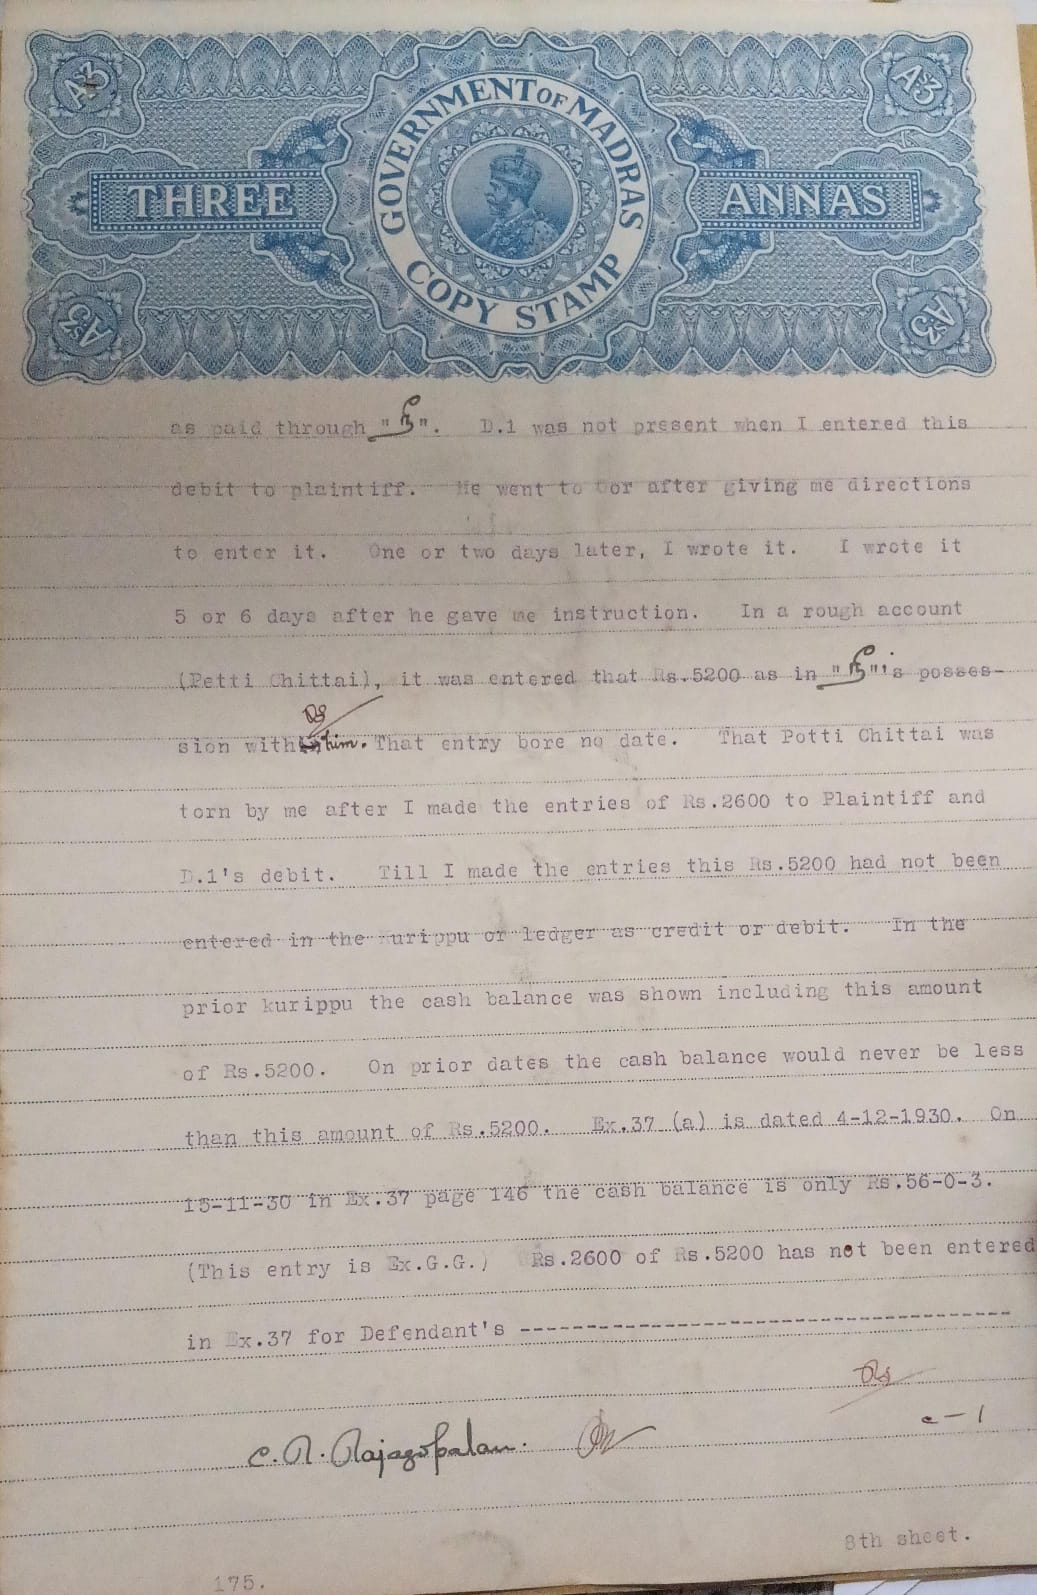 As3
As3
GOVERNMENT OF MADRAS
THREE
ANNAS
COPY STAMP
As3
As3
as paid through " ". D.1 was not present when I entered this
debit to plaintiff. He went to after giving me directions
to enter it. One or two days later, I wrote it. I wrote it
5 or 6 days after he gave me instruction. In a rough account
(Petti Chittai), it was entered that Rs.5200 as in " "'s posses-
sion with him. That entry bore no date. That Potti Chittai was
torn by me after I made the entries of Rs.2600 to Plaintiff and
D.1's debit. Till I made the entries this Rs.5200 had not been
entered in the kurippu or ledger as credit or debit. In the
prior kurippu the cash balance was shown including this amount
of Rs.5200. On prior dates the cash balance would never be less
than this amount of Rs.5200. Ex.37 (a) is dated 4-12-1930. On
15-11-30 in Ex.37 page 146 the cash balance is only Rs.56-0-3.
(This entry is Ex.G.G.) Rs.2600 of Rs.5200 has not been entered
in Ex.37 for Defendant's -------------------------------------
c-1
C. R. Rajagopalan.
8th sheet.
175.